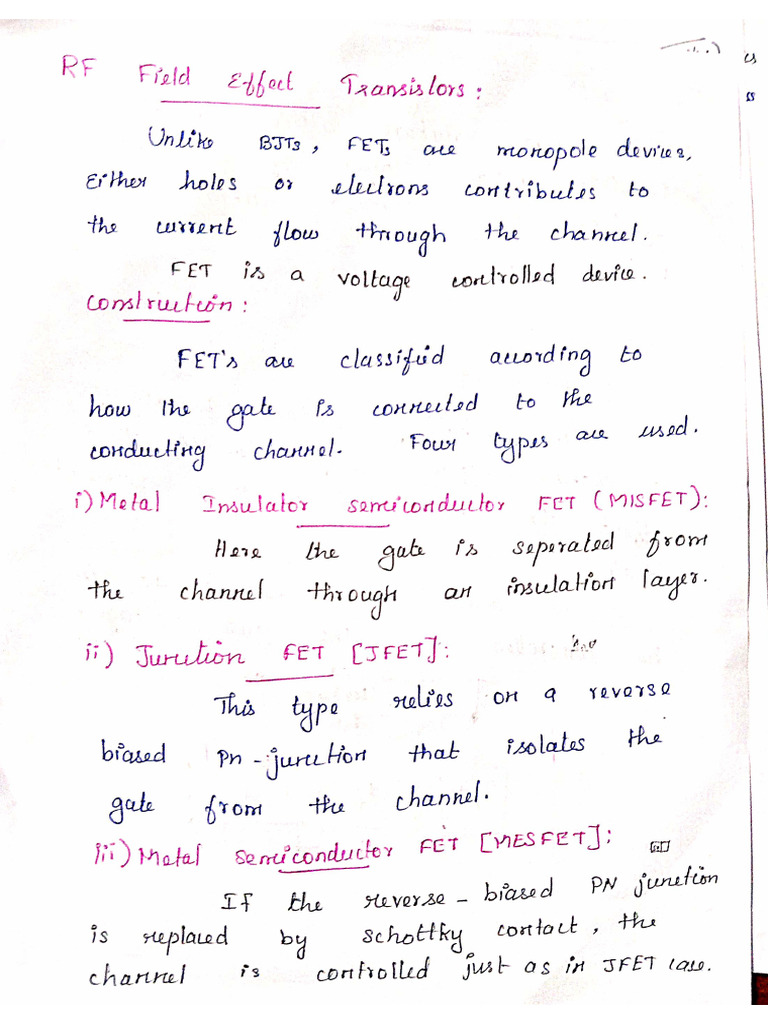 RF Field Effect Transistors :
Unlike BJTs, FETs are monopole devices,
Either holes or electrons contributes to
the current flow through the channel.
FET is a voltage controlled device.
Construction :
FET's are classified according to
how the gate is connected to the
conducting channel. Four types are used.
i) Metal Insulator semiconductor FET (MISFET):
Here the gate is seperated from
the channel through an insulation layer.
ii) Junction FET [JFET]:
This type relies on a reverse
biased Pn-junction that isolates the
gate from the channel.
iii) Metal Semiconductor FET [MESFET]:
If the reverse-biased PN junction
is replaced by schottky contact, the
channel is controlled just as in JFET case.